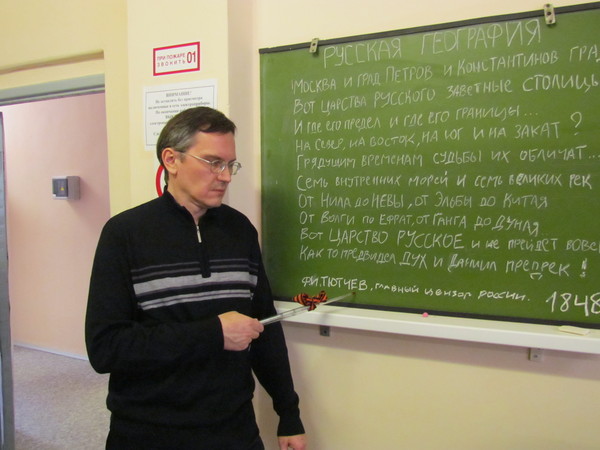 ПРИ ПОЖАРЕ
ЗВОНИТЬ 01
ВНИМАНИЕ!
РУССКАЯ ГЕОГРАФИЯ
МОСКВА И ГРАД ПЕТРОВ И КОНСТАНТИНОВ ГРАД
ВОТ ЦАРСТВА РУССКОГО ЗАВЕТНЫЕ СТОЛИЦЫ
И ГДЕ ЕГО ПРЕДЕЛ И ГДЕ ЕГО ГРАНИЦЫ...
НА СЕВЕР, НА ВОСТОК, НА ЮГ И НА ЗАКАТ?
ГРЯДУЩИМ ВРЕМЕНАМ СУДЬБЫ ИХ ОБЛИЧАТ...
СЕМЬ ВНУТРЕННИХ МОРЕЙ И СЕМЬ ВЕЛИКИХ РЕК
ОТ НИЛА ДО НЕВЫ, ОТ ЭЛЬБЫ ДО КИТАЯ
ОТ ВОЛГИ ПО ЕФРАТ, ОТ ГАНГА ДО ДУНАЯ
ВОТ ЦАРСТВО РУССКОЕ И НЕ ПРЕЙДЕТ ВОВЕК
КАК ТО ПРЕДВИДЕЛ ДУХ И ДАНИИЛ ПРЕДРЕК!
Ф.И. ТЮТЧЕВ, ГЛАВНЫЙ ЦЕНЗОР РОССИИ. 1848